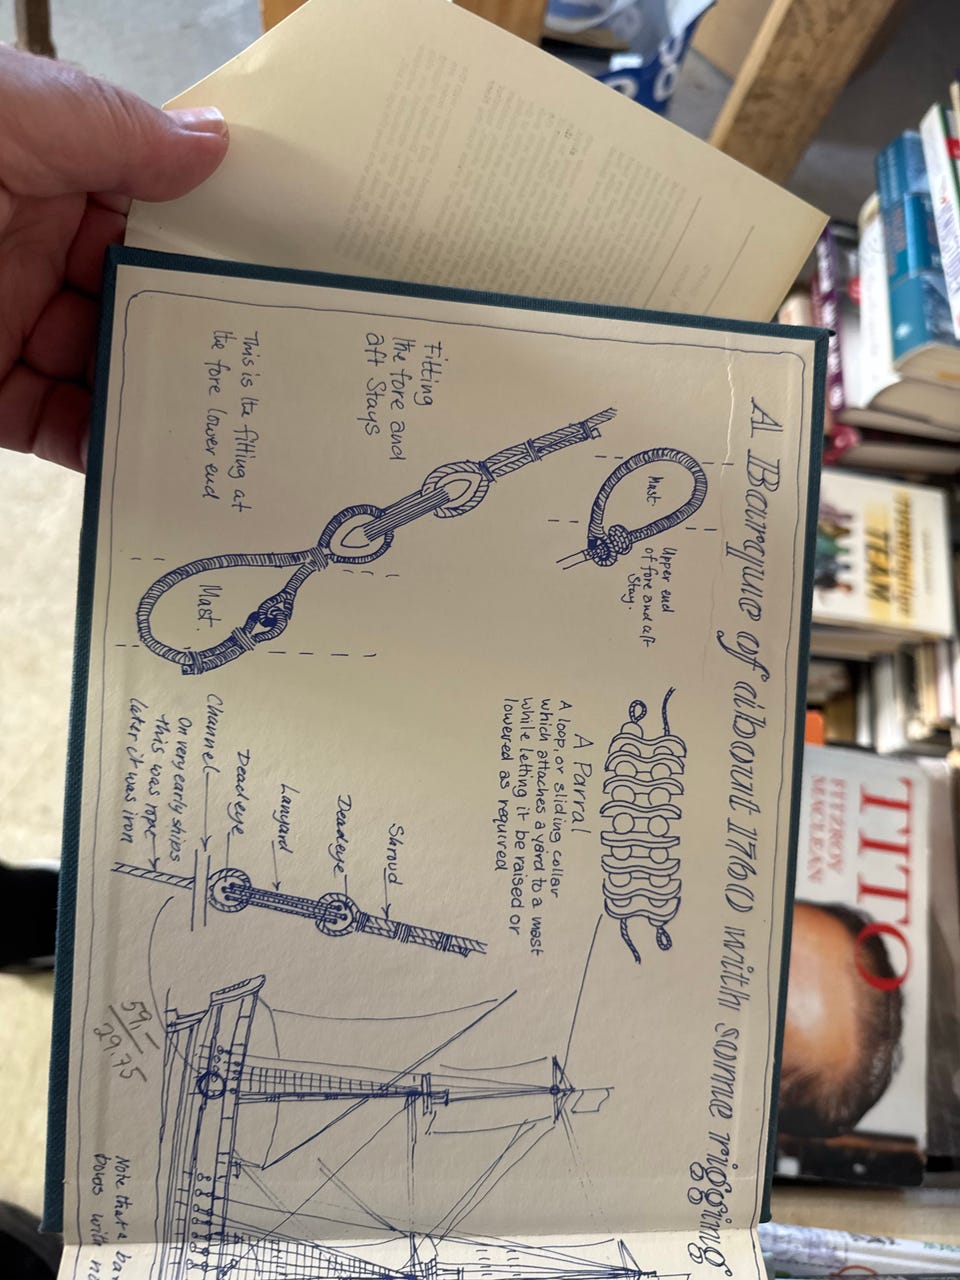 A Barque of about 1760 with some rigging
Mast.
Upper end
of fore and aft
Stay.
Fitting
the fore and
aft Stays
This is the fitting at
the fore lower end
Mast.
A Parral
A loop, or sliding collar
which attaches a yard to a mast
while letting it be raised or
lowered as required
Shroud
Deadeye
Lanyard
Deadeye
Channel
On very early ships
this was rope
later it was iron
59,-
29.75
Note that a
bows with
TITO
FITZROY
MACLEAN
TEAM